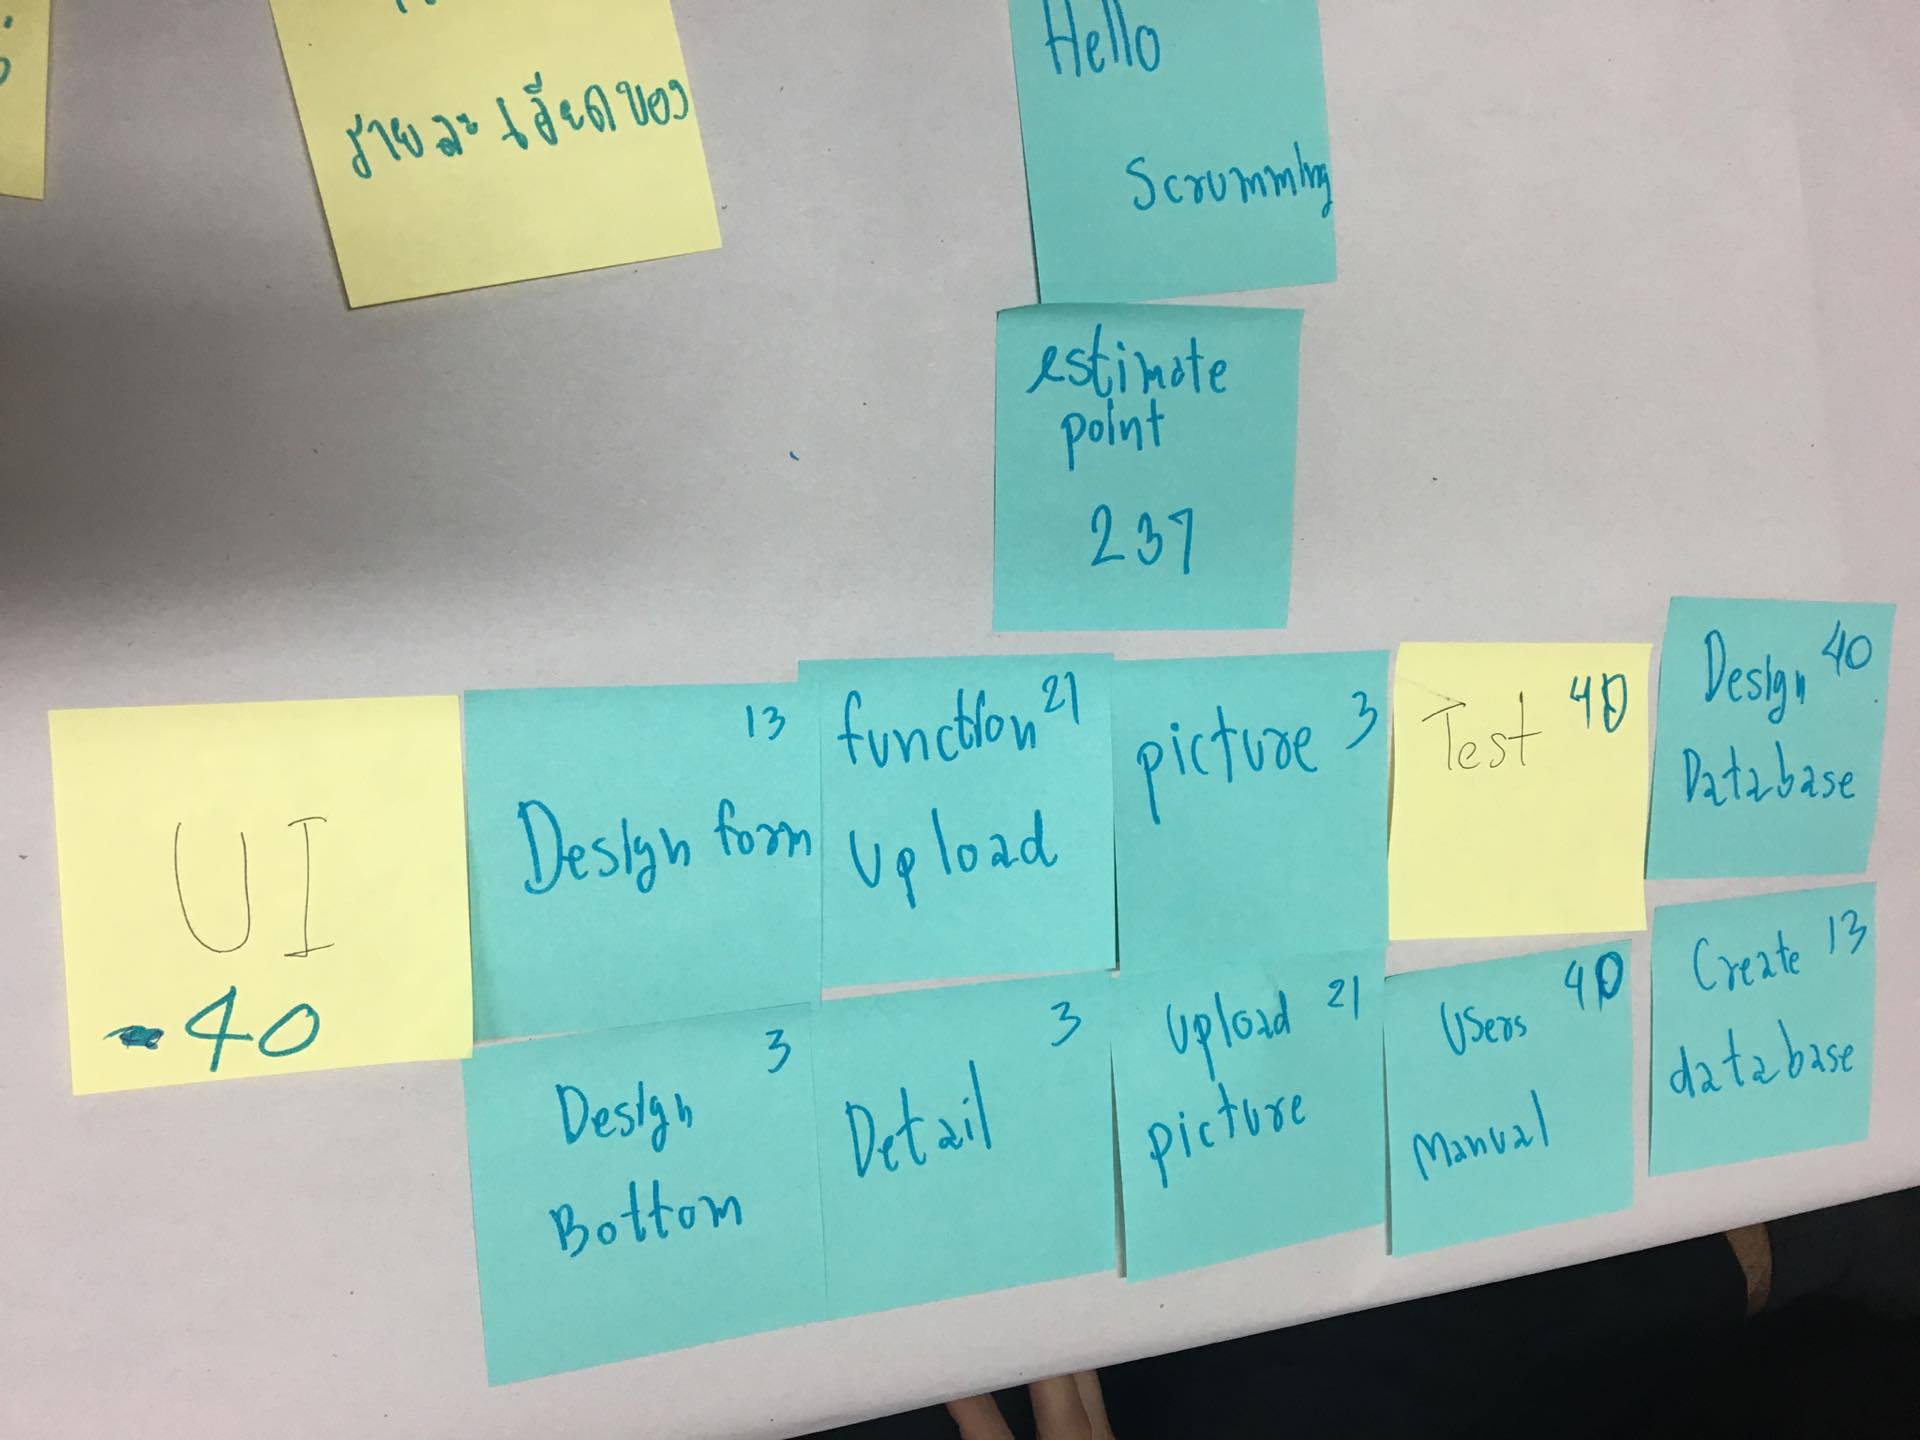 รายละเอียดของ
Hello
Scrumming
estimate
point
237
UI
40
13
Design form
function 21
Upload
picture 3
Test 40
Design 40
Database
3
Design
Bottom
3
Detail
Upload 21
picture
40
Users
Manual
Create 13
database